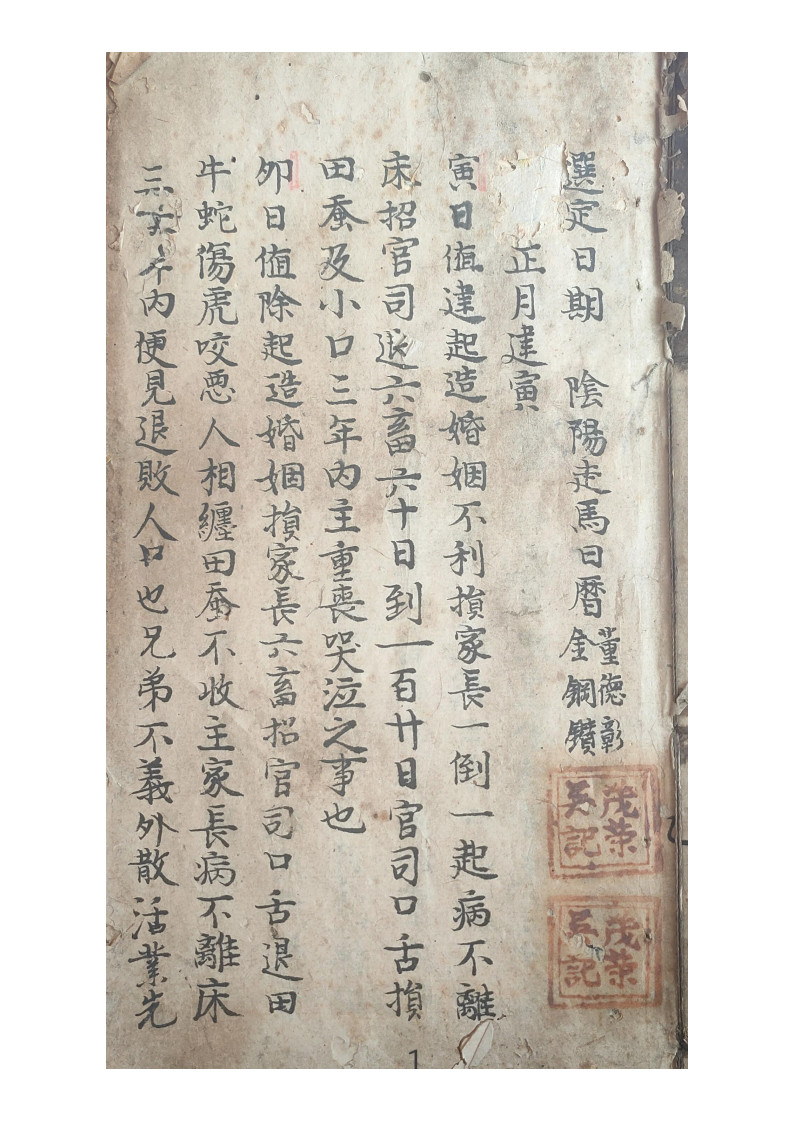 選定日期　陰陽走馬日曆 董德彰
金鋼鑽
茂榮
吳記
茂榮
吳記
正月建寅
寅日值建起造婚姻不利損家長一倒一起病不離
床招官司退六畜六十日到一百廿日官司口舌損
田蚕及小口三年內主重喪哭泣之事也
卯日值除起造婚姻損家長六畜招官司口舌退田
牛蛇傷虎咬惡人相纏田蚕不收主家長病不離床
三六年內便見退敗人口也兄弟不義外散活業先
1